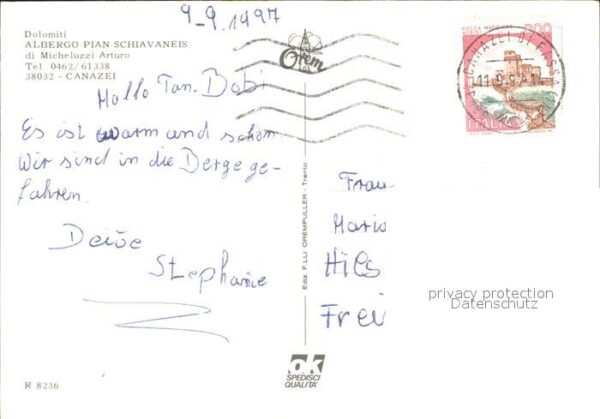 9-9.1997
Dolomiti
ALBERGO PIAN SCHIAVANEIS
di Micheluzzi Arturo
Tel 0462/61338
38032 - CANAZEI
Orem
Hallo Tan. Bobi
Es ist warm und schön.
Wir sind in die Berge ge-
fahren.
Deine
Stephanie
Ediz. F.LLI OREMPULLER - Trento
Frau
Mario
Hils
Frei
privacy protection
Datenschutz
CANAZEI DI FASSA
11.9.97
ITALIA
ok
SPEDISCI
QUALITA'
R 8236